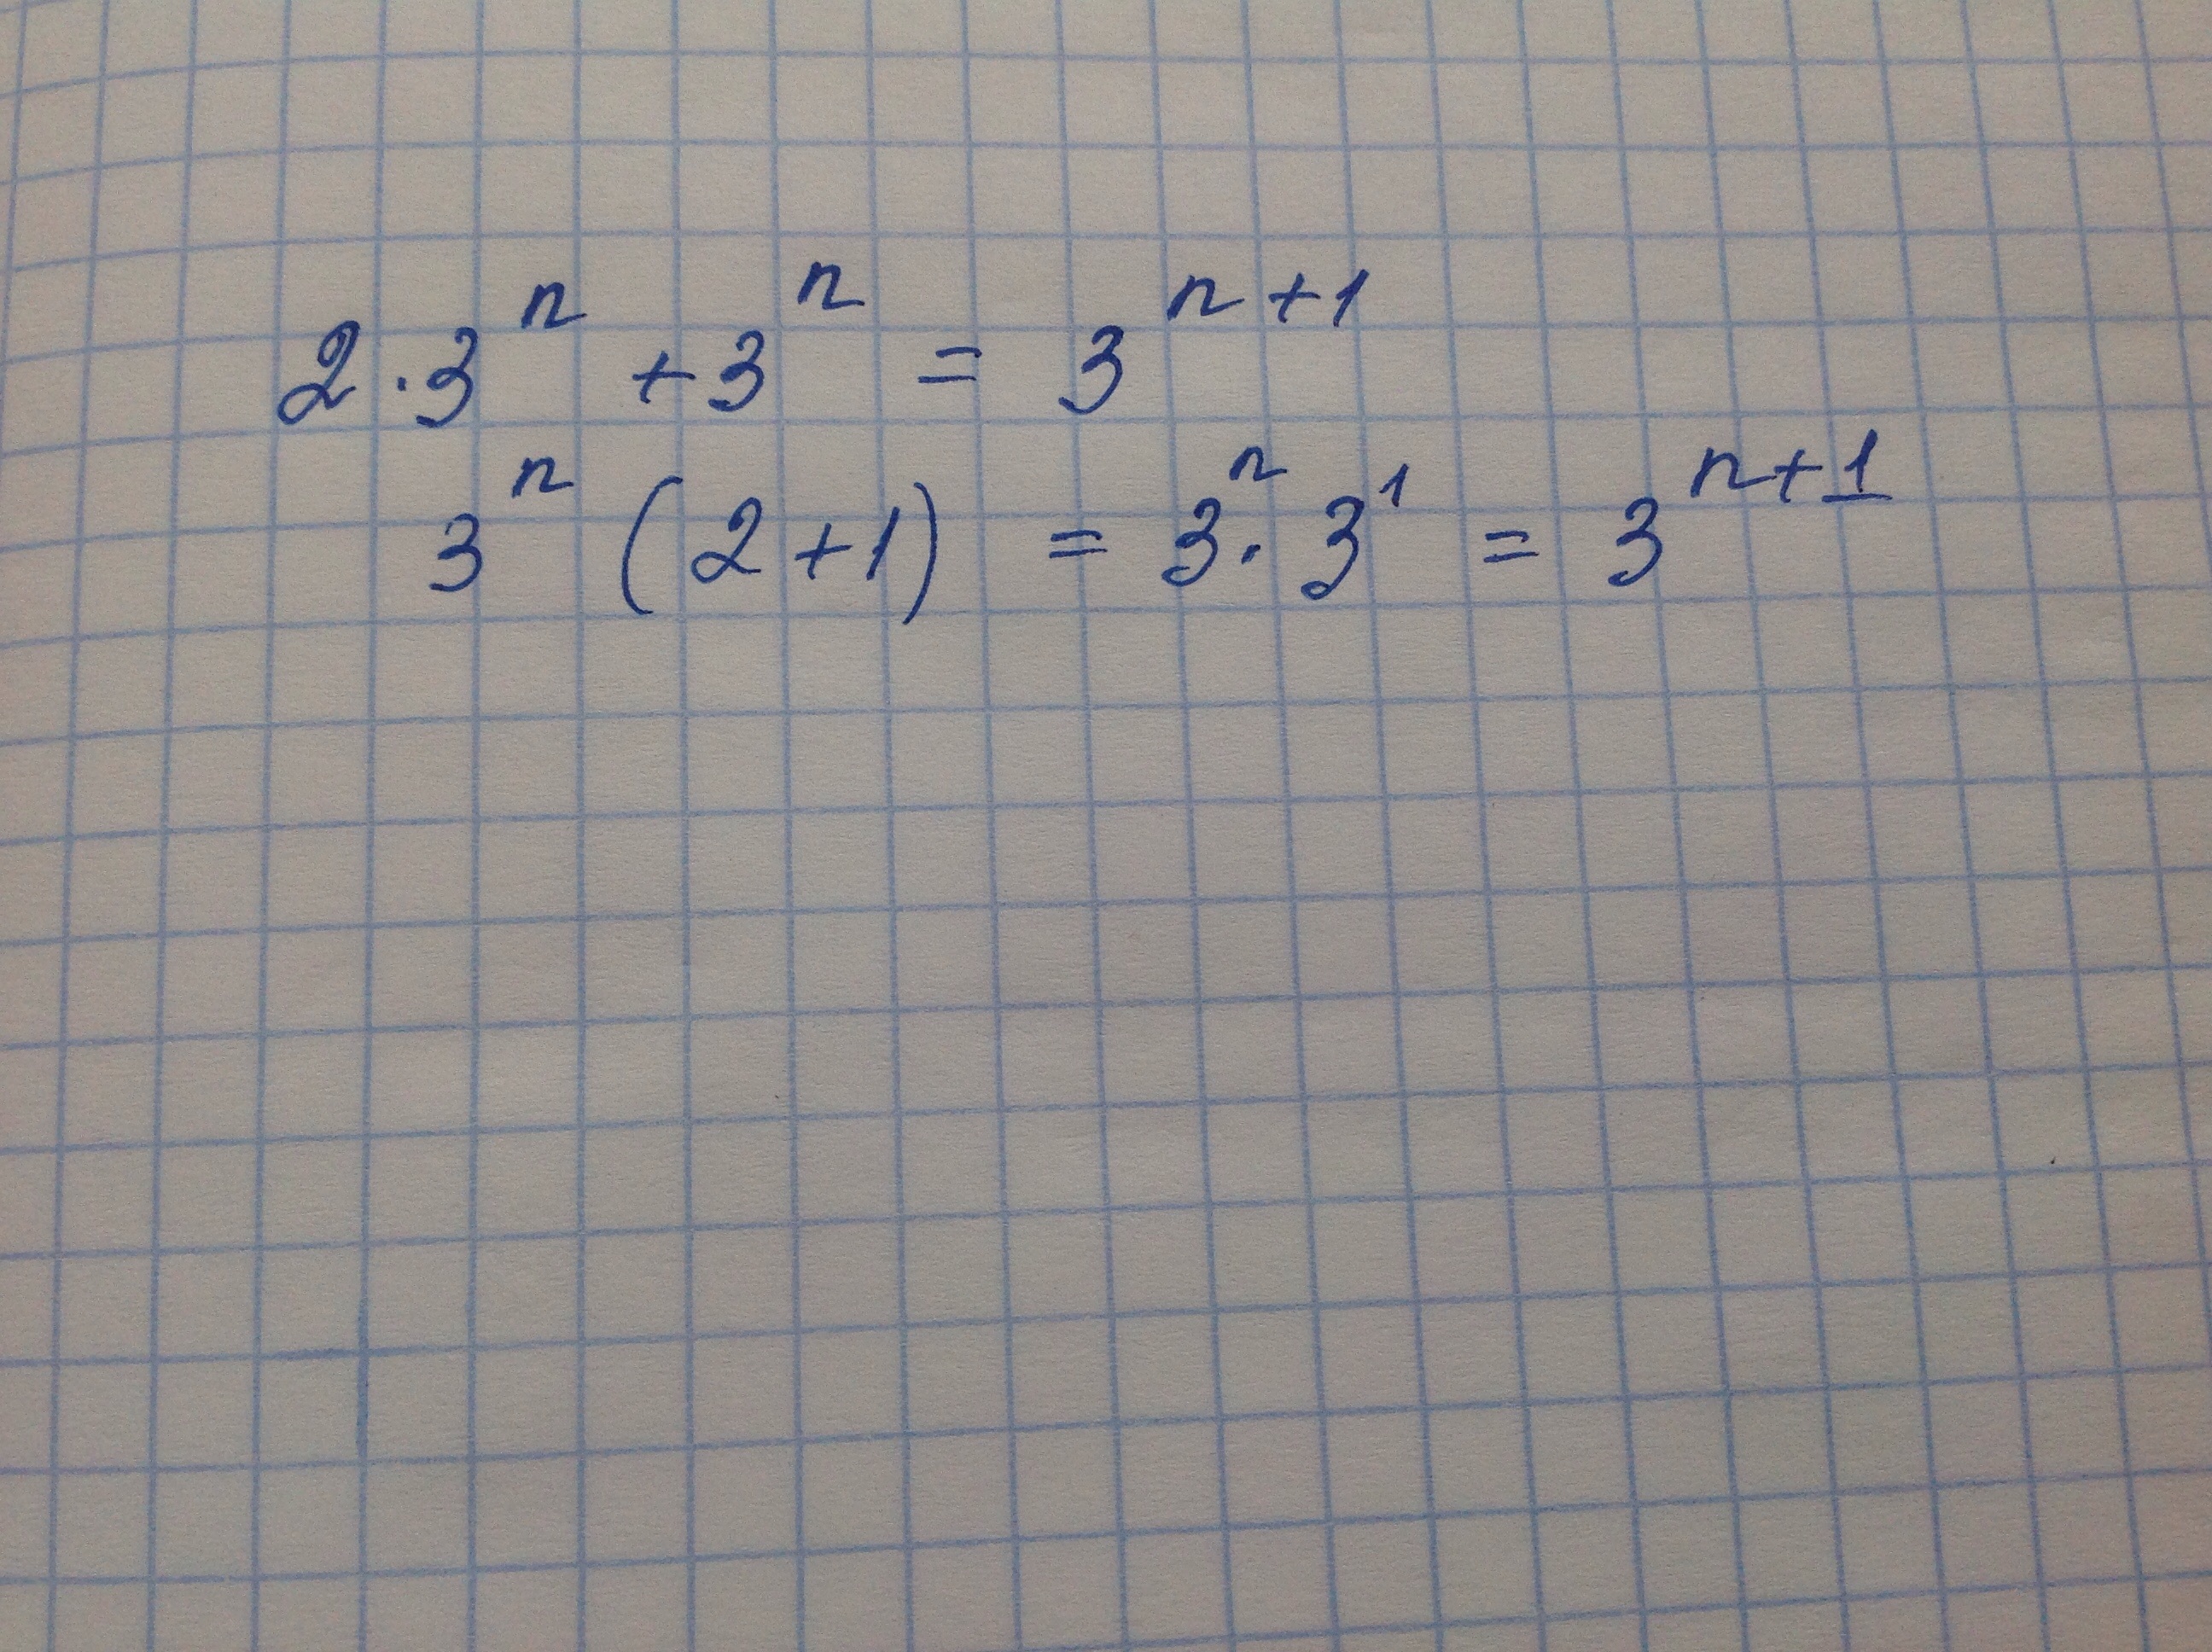 2 · 3ⁿ + 3ⁿ = 3ⁿ⁺¹
3ⁿ (2 + 1) = 3ⁿ · 3¹ = 3ⁿ⁺¹